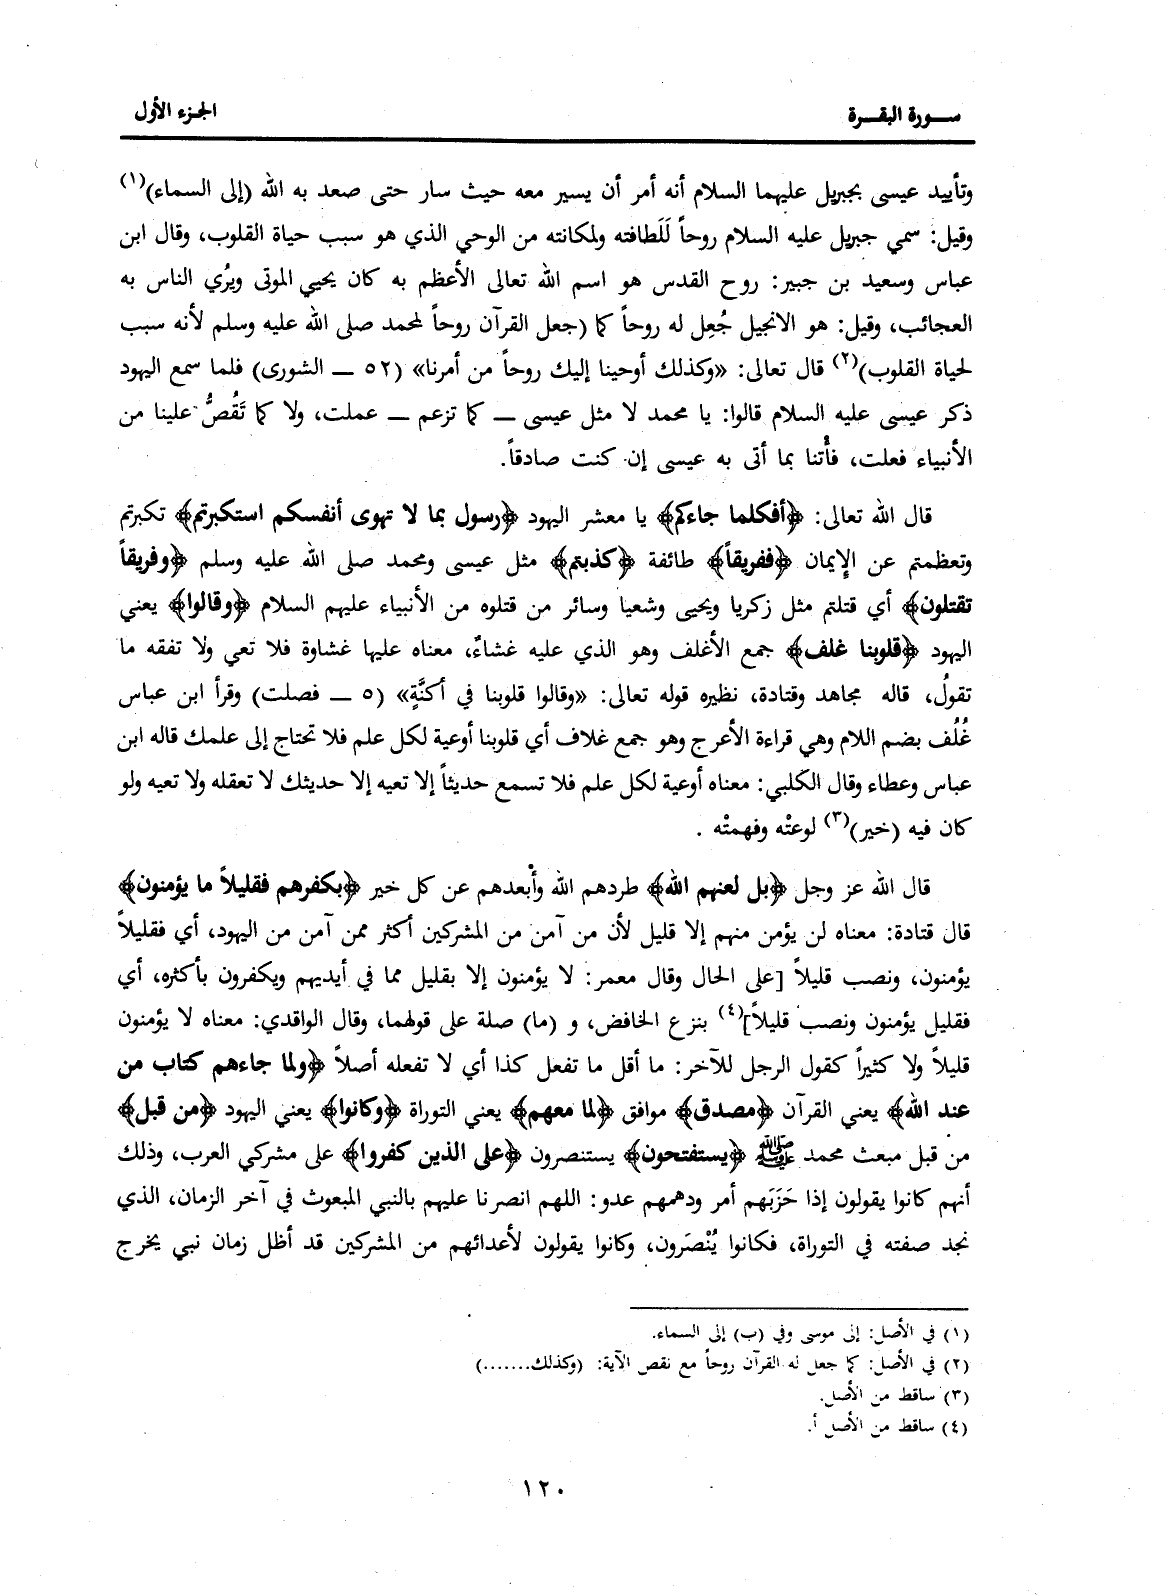 ســورة البقــرة
الجزء الأول
وتأييد عيسى بجبريل عليهما السلام أنه أمر أن يسير معه حيث سار حتى صعد به الله (إلى السماء)(١)
وقيل: سمي جبريل عليه السلام روحاً لَلَطافته ولمكانته من الوحي الذي هو سبب حياة القلوب، وقال ابن
عباس وسعيد بن جبير: روح القدس هو اسم الله تعالى الأعظم به كان يحيي الموتى ويرُي الناس به
العجائب، وقيل: هو الانجيل جُعِل له روحاً كما (جعل القرآن روحاً لمحمد صلى الله عليه وسلم لأنه سبب
لحياة القلوب)(٢) قال تعالى: «وكذلك أوحينا إليك روحاً من أمرنا» (٥٢ ـــ الشورى) فلما سمع اليهود
ذكر عيسى عليه السلام قالوا: يا محمد لا مثل عيسى ـــ كما تزعم ـــ عملت، ولا كما تَقُصُّ علينا من
الأنبياء فعلت، فأْتنا بما أتى به عيسى إن كنت صادقاً.
قال الله تعالى: ﴿أفكلما جاءكم﴾ يا معشر اليهود ﴿رسول بما لا تهوى أنفسكم استكبرتم﴾ تكبرتم
وتعظمتم عن الإيمان ﴿ففريقاً﴾ طائفة ﴿كذبتم﴾ مثل عيسى ومحمد صلى الله عليه وسلم ﴿وفريقاً
تقتلون﴾ أي قتلتم مثل زكريا ويحيى وشعيا وسائر من قتلوه من الأنبياء عليهم السلام ﴿وقالوا﴾ يعني
اليهود ﴿قلوبنا غلف﴾ جمع الأغلف وهو الذي عليه غشاءٌ، معناه عليها غشاوة فلا تعي ولا تفقه ما
تقولُ، قاله مجاهد وقتادة، نظيره قوله تعالى: «وقالوا قلوبنا في أكنَّةٍ» (٥ ـــ فصلت) وقرأ ابن عباس
غُلُف بضم اللام وهي قراءة الأعرج وهو جمع غلاف أي قلوبنا أوعية لكل علم فلا تحتاج إلى علمك قاله ابن
عباس وعطاء وقال الكلبي: معناه أوعية لكل علم فلا تسمع حديثاً إلا تعيه إلا حديثك لا تعقله ولا تعيه ولو
كان فيه (خير)(٣) لوعتْه وفهمتْه .
قال الله عز وجل ﴿بل لعنهم الله﴾ طردهم الله وأبعدهم عن كل خير ﴿بكفرهم فقليلاً ما يؤمنون﴾
قال قتادة: معناه لن يؤمن منهم إلا قليل لأن من آمن من المشركين أكثر ممن آمن من اليهود، أي فقليلاً
يؤمنون، ونصب قليلاً [على الحال وقال معمر: لا يؤمنون إلا بقليل مما في أيديهم ويكفرون بأكثره، أي
فقليل يؤمنون ونصب قليلاً](٤) بنزع الخافض، و (ما) صلة على قولهما، وقال الواقدي: معناه لا يؤمنون
قليلاً ولا كثيراً كقول الرجل للآخر: ما أقل ما تفعل كذا أي لا تفعله أصلاً ﴿ولما جاءهم كتاب من
عند الله﴾ يعني القرآن ﴿مصدق﴾ موافق ﴿لما معهم﴾ يعني التوراة ﴿وكانوا﴾ يعني اليهود ﴿من قبل﴾
من قبل مبعث محمد ﷺ ﴿يستفتحون﴾ يستنصرون ﴿على الذين كفروا﴾ على مشركي العرب، وذلك
أنهم كانوا يقولون إذا حَزَبَهم أمر ودهمهم عدو: اللهم انصرنا عليهم بالنبي المبعوث في آخر الزمان، الذي
نجد صفته في التوراة، فكانوا يُنْصَرون، وكانوا يقولون لأعدائهم من المشركين قد أظل زمان نبي يخرج
(١) في الأصل: إلى موسى وفي (ب) إلى السماء.
(٢) في الأصل: كما جعل له القرآن روحاً مع نقص الآية: (وكذلك.......)
(٣) ساقط من الأصل.
(٤) ساقط من الأصل أ.
١٢٠